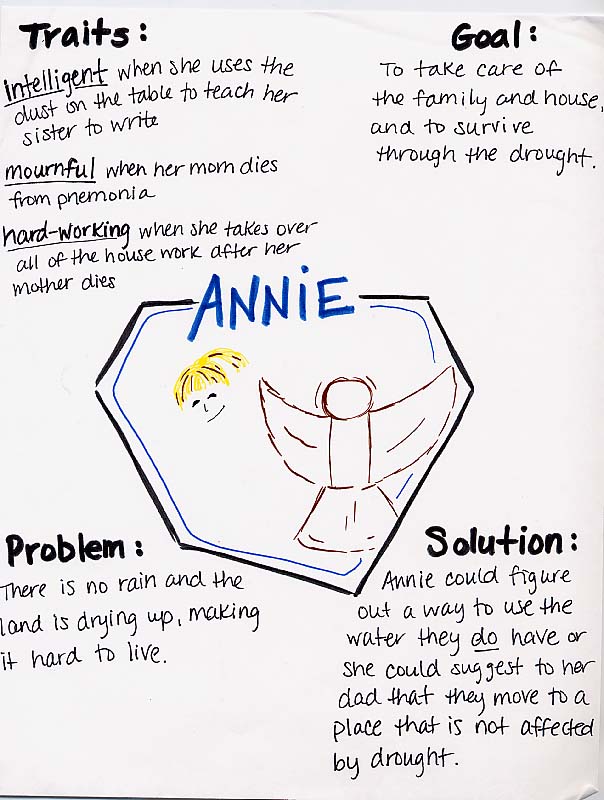 Traits:
intelligent when she uses the
dust on the table to teach her
sister to write
mournful when her mom dies
from pnemonia
hard-working when she takes over
all of the house work after her
mother dies
Goal:
To take care of
the family and house,
and to survive
through the drought.
ANNiE
Problem:
There is no rain and the
land is drying up, making
it hard to live.
Solution:
Annie could figure
out a way to use the
water they do have or
she could suggest to her
dad that they move to a
place that is not affected
by drought.